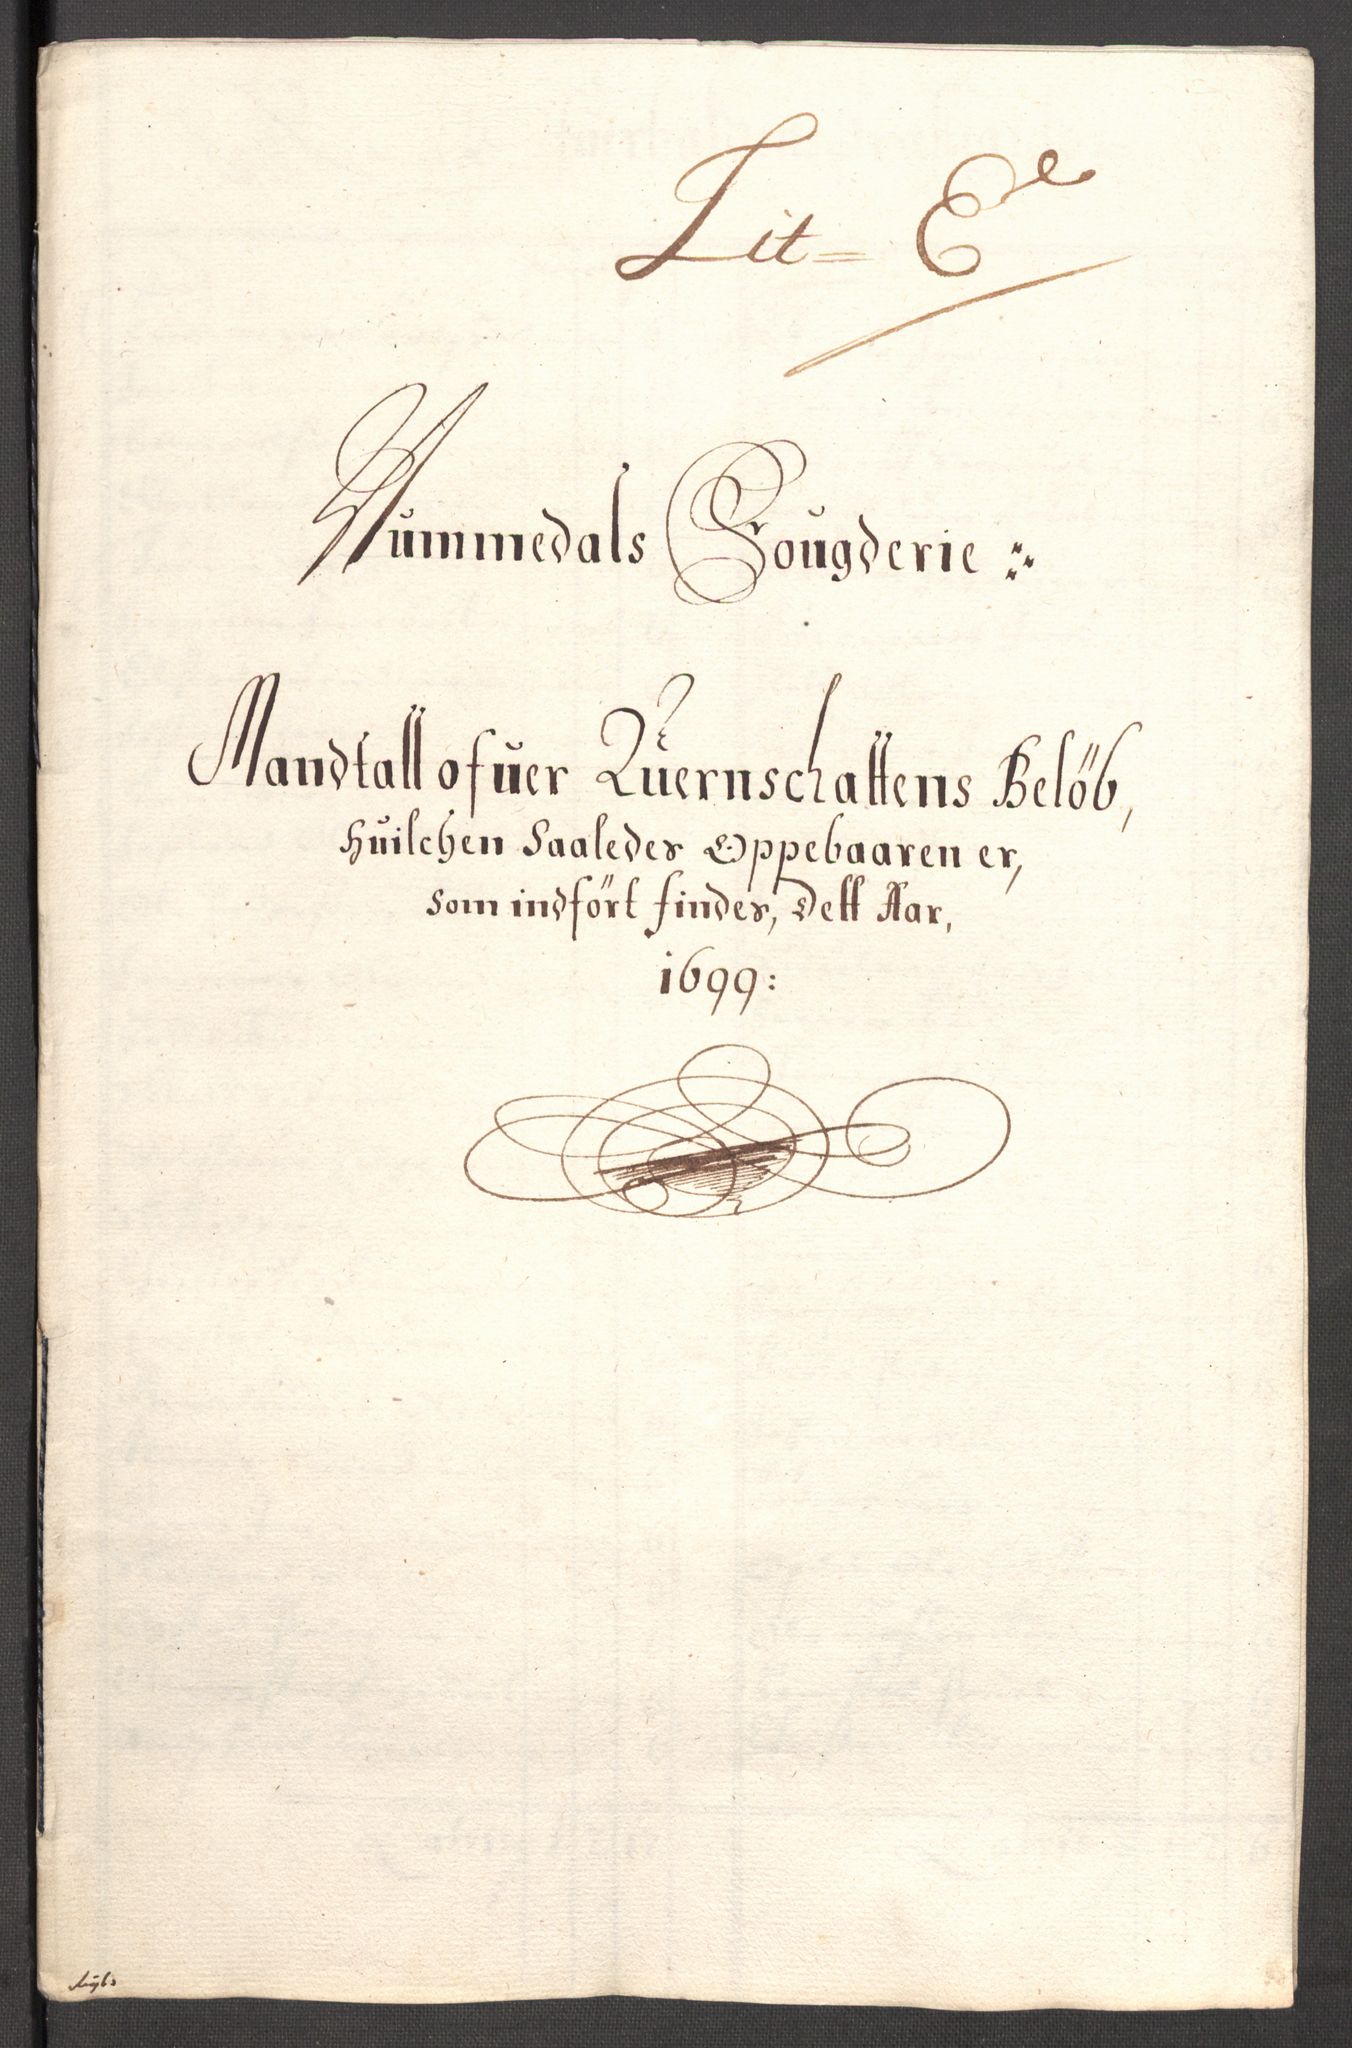 Lit= E
Nummedals Fougderie
Mandtall ofuer Quernschattens Belöb,
Huilchen Saaleder Oppebaaren er,
som indfört finder, dett Aar,
1699: